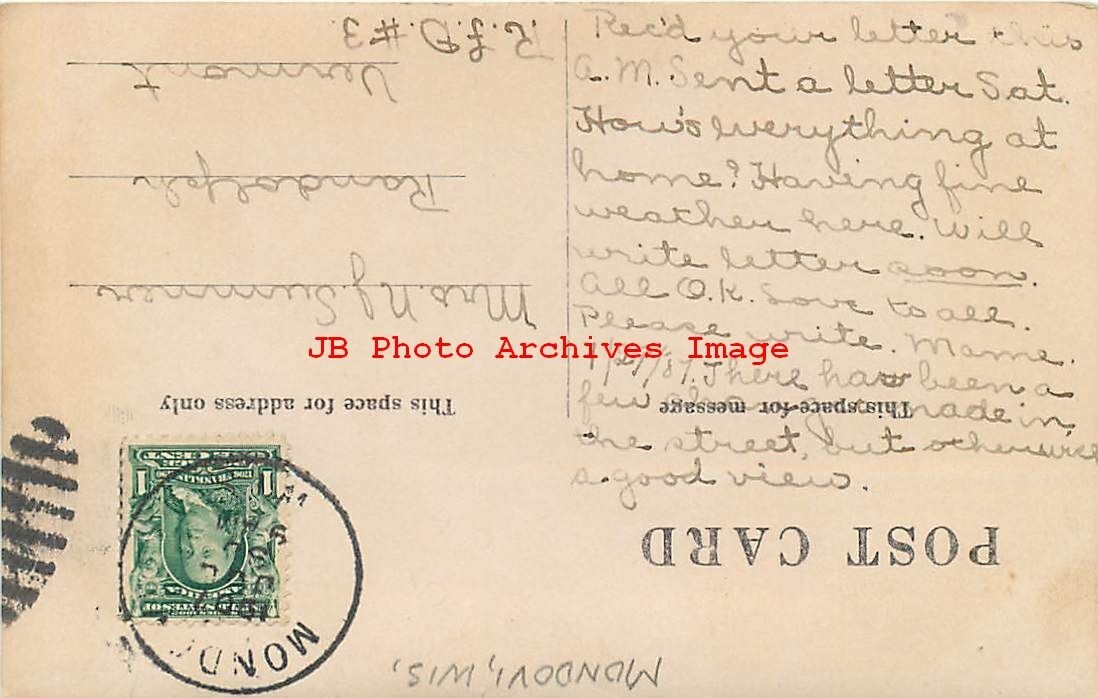 Rec'd your letter this
A.M. Sent a letter Sat.
How's everything at
home? Having fine
weather here. Will
write letter soon.
All O.K. Love to all.
Please write. Mame.
There has been a
few made in
the street, but otherwise
a good view.
POST CARD
This space for message
This space for address only
Mrs. N.J. Sumner
Randolph
Vermont
R.F.D. #3
MONDOVI, WIS.
MOND
1
1
JB Photo Archives Image